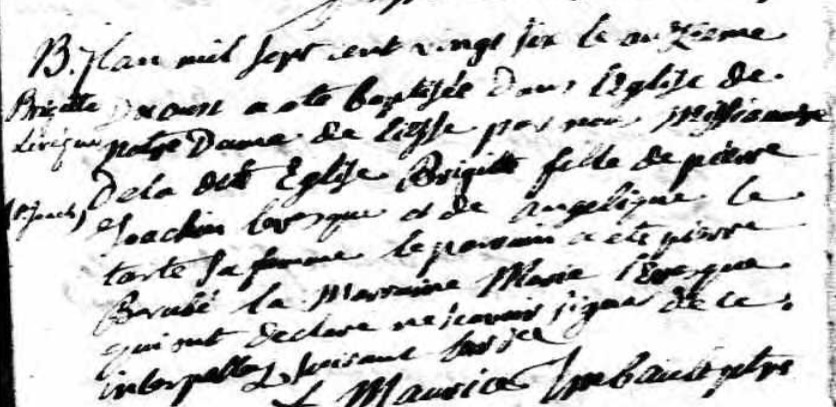 B. Jlan mil Sept cent vingt six le onzieme
Brigitte D'aoust a ete baptisée Dans l'Eglise de
Lévesque notre Dame de liesse par nous Missionaire
De la dite Eglise Brigitte fille de pierre
Joachim levesque et de angelique le
tarte sa femme le parrain a ete pierre
Berubé la Marraine Marie levesque
qui ont declare ne scavoir signer de ce
interpellez suivant
f Maurice Imbault ptre